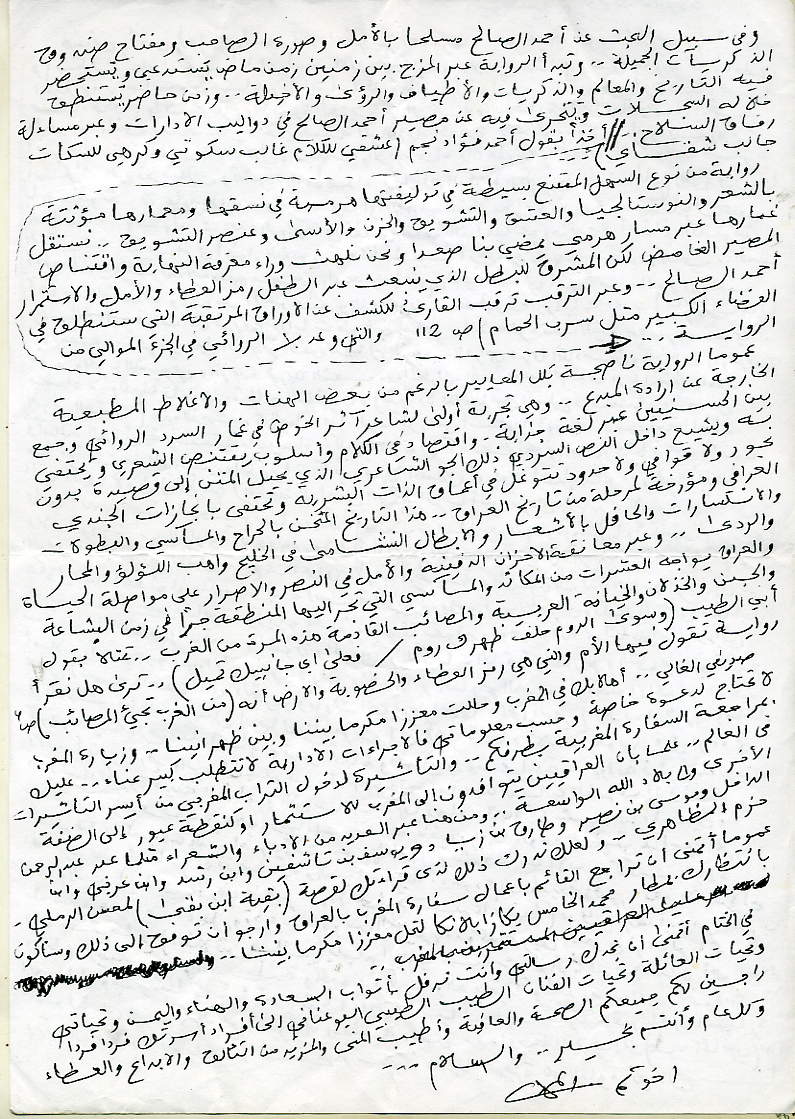 وفي سبيل البحث عن أحمد الصالح مسلحا بالأمل وصورة الصاحب ومفتاح صنـدوق
الذكريات الجميلة .. وتبدأ الرواية عبر المزج بين زمنين زمن ماض يستدعي ويستحضر
فيه التاريخ والمعالم والذكريات والأطياف والرؤى والأخيلة .. وزمن حاضر يستنطق
خلاله السجلات ويتحرى فيه عن مصير أحمد الصالح في دواليب الادارات وعبر مساءلة
رفاق السلاح .. // أخذا بقول أحمد فؤاد نجم (عشقي للكلام غالب سكوتي وكرهي للسكات
جالب شقاي)
رواية من نوع السهل الممتنع بسيطة في توليفتها هرمية في نسقها ومعمارها مؤثثة
بالشعر والنوستالجيا والعشق والتشويق والحزن والأسى وعنصر التشويق .. نستقل
غمارها عبر مسار هرمي يمضي بنا صعدا ونحن نلهث وراء معرفة النهاية واقتناص
المصير الغامض لكن المشرق للبطل الذي ينبعث عبر الطفل رمز العطاء والأمل والاستمرار
أحمد الصالح .. وعبر الترقب ترقب القارئ للكشف عن الأوراق المرتقبة التي ستنطلق في
الفضاء الكبير مثل سرب الحمام) ص 112 والتي وعد بها الروائي في الجزء الموالي من
الرواية ..
عموما الرواية ناجحة بكل المعايير بالرغم من بعض الهنات والأغلاط المطبعية
الخارجة عن إرادة المبدع .. وهي تجربة أولى لشاعر آثر الخوض في غمار السرد الروائي وجمع
بين الحسنيين عبر لغة جذابة .. واقتصاد في الكلام وأسلوب يقتنص الشعري ويحتفي
به ويشيع داخل النص السردي ذلك الجو الشاعري الذي يحيل المتن إلى قصيدة بدون
بحور ولا قوافي ولا حدود تتوغل في أعماق الذات البشرية وتحتفي بانجازات الجندي
العراقي ومؤرخة لمرحلة من تاريخ العراق .. هذا التاريخ المثخن بالجراح والمآسي والبطولات
والانكسارات والحافل بالأشعار والأبطال النشامى في الخليج واهب اللؤلؤ والمحار
والردى .. وعبر معانقة الأحزان الدفينة والأمل في النصر والاصرار على مواصلة الحياة
والعراق يواجه العشرات من المكائد والمآسي التي تجر اليها المنطقة جرا في زمن البشاعة
والجبن والخذلان والخيانة العربية والمصائب القادمة هذه المرة من الغرب .. عملا بقول
أبي الطيب (وسوى الروم خلف ظهرك روم / فعلى أي جانبيك تميل) .. ترى هل نقرأ
رواية تقول فيها الأم والتي هي رمز العطاء والخصوبة والأرض أنه (من الغرب تجيء المصائب) ص6
صديقي الغالي .. أهلا بك في المغرب وحللت معززا مكرما بيننا وبين ظهرانينا .. وزيارة المغرب
لا تحتاج لدعوة خاصة وحسب معلوماتي فالاجراءات الادارية لا تتطلب كبير عناء .. عليك
بمراجعة السفارة المغربية بطرفكم .. والتأشيرة لدخول التراب المغربي من أيسر التأشيرات
في العالم .. علما بأن العراقيين يتوافدون إلى المغرب للاستثمار أو كنقطة عبور إلى الضفة
الأخرى وإلى بلاد الله الواسعة .. ومن هنا عبر العديد من الأدباء والشعراء قبلما عبر عبد الرحمن
الداخل وموسى بن نصير وطارق بن زياد ويوسف بن تاشفين وابن رشد وابن عربي وابن
حزم الظاهري .. ولعلك تدرك ذلك لدى قراءتك لقصة (بقية ابن بقى) لمحسن الرملي ..
عموما أتمنى أن تراجع القائم بأعمال سفارة المغرب بالعراق وأرجو أن توفق إلى ذلك وسأكون
بانتظارك بمطار محمد الخامس بكازابلانكا لتحل معززا مكرما بيننا ..
في الختام أتمنى أن تجدك رسالتي وأنت ترفل بأثواب السعادة والهناء واليمن وتحياتي
وتحيات العائلة وتحيات الفنان الطيب الطيبي البوعناني إلى أفراد أسرتك فردا فردا
راجين لكم جميعكم الصحة والعافية وأطيب المنى والمزيد من التألق والابداع والعطاء
وكل عام وأنتم بخير .. والسلام ...
اخوكم